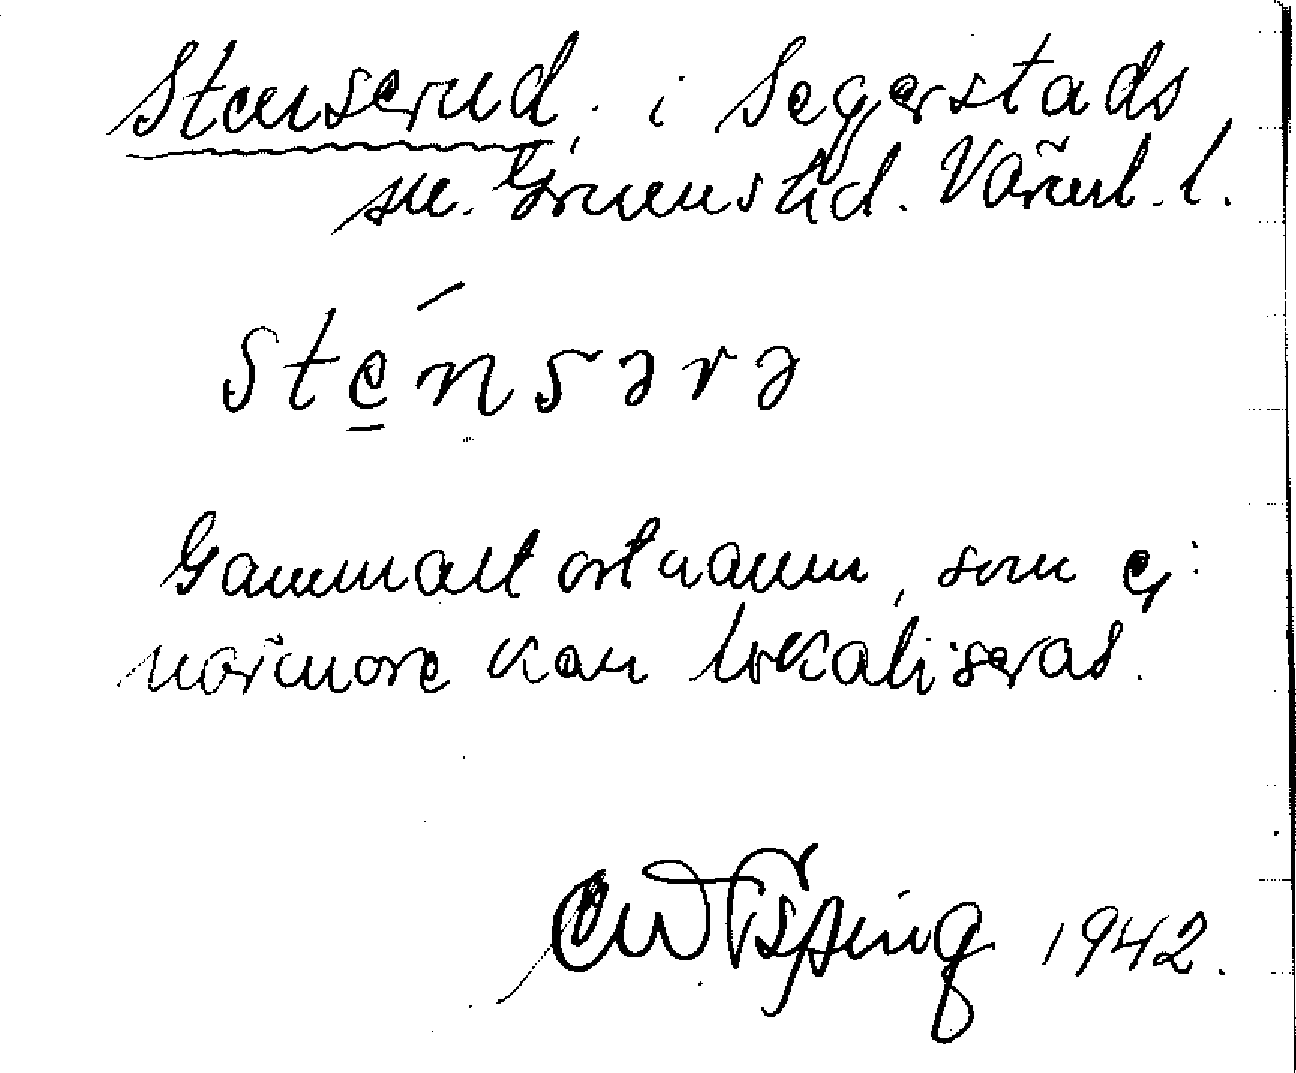 Stenserud i Segerstads
sn. Grumshd. Värml. l.
Sténsərə
Gammalt ortnamn, som ej
närmare kan lokaliseras.
1942.